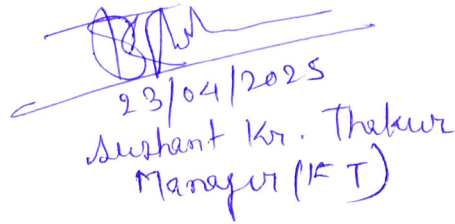 23/04/2025
Sushant Kr. Thakur
Manager (F T)